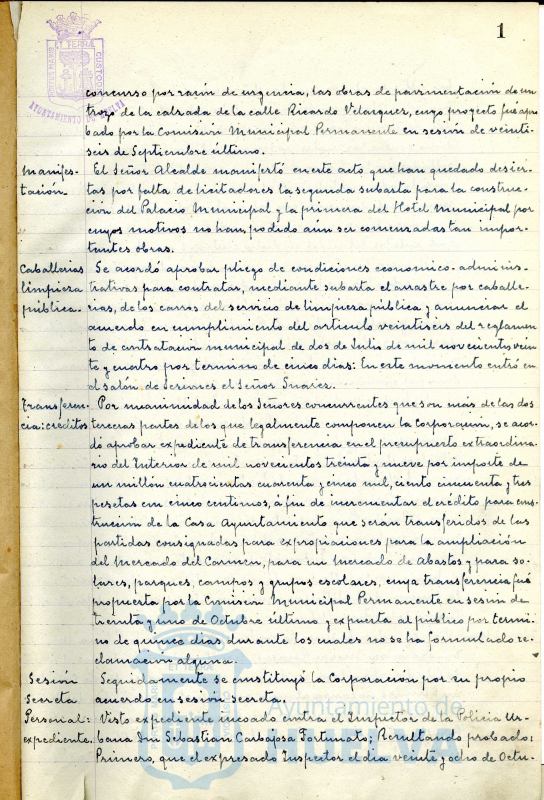 1
PORTUS MARIS ET TERRÆ CUSTODIA
AYUNTAMIENTO DE HUELVA
concurso por razón de urgencia, las obras de pavimentación de un
trozo de la calzada de la calle Ricardo Velazquez, cuyo proyecto fué apro-
bado por la Comision Municipal Permanente en sesión de veinti-
seis de Septiembre último.
Manifes- El Señor Alcalde manifestó en este acto que han quedado desier-
tación. tas por falta de licitadores la segunda subasta para la construc-
cion del Palacio Municipal y la primera del Hotel Municipal por
cuyos motivos no han podido aún ser comenzadas tan impor-
tantes obras.
Caballerias Se acordó aprobar pliego de condiciones economico-adminis-
limpieza trativas para contratar, mediante subasta el arrastre por caballe-
pública. rias, de los carros del servicio de limpieza pública y anunciar el
acuerdo en cumplimiento del articulo veintiseis del reglamen-
to de contratacion municipal de dos de Julio de mil novecientos vein-
te y cuatro por termino de cinco dias: En este momento entró en
el salón de sesiones el Señor Suarez.
Transferen- Por unanimidad de los Señores concurrentes que son más de las dos
cia: creditos terceras partes de los que legalmente componen la Corporación, se acor-
dó aprobar expediente de transferencia en el presupuesto extraordina-
rio del Interior de mil novecientos treinta y nueve por importe de
un millón cuatrocientas cuarenta y cinco mil, ciento cincuenta y tres
pesetas con cinco centimos, á fin de incrementar el crédito para cons-
trucción de la Casa Ayuntamiento que serán transferidos de las
partidas consignadas para expropiaciones para la ampliación
del Mercado del Carmen, para un Mercado de Abastos y para so-
lares, parques, campos y grupos escolares, cuya transferencia fué
propuesta por la Comision Municipal Permanente en sesión de
treinta y uno de Octubre último y expuesta al público por termi-
no de quince dias durante los cuales no se ha formulado re-
clamacion alguna.
Sesión Seguidamente se constituyó la Corporación por su propio
Secreta acuerdo en sesión secreta.
Personal: Visto expediente incoado contra el Inspector de la Policia Ur-
expediente. bana Dn Sebastian Carbajosa Fortunato; Resultando probado:
Primero, que el expresado Inspector el dia veinte y ocho de Octu-
Ayuntamiento de
HUELVA